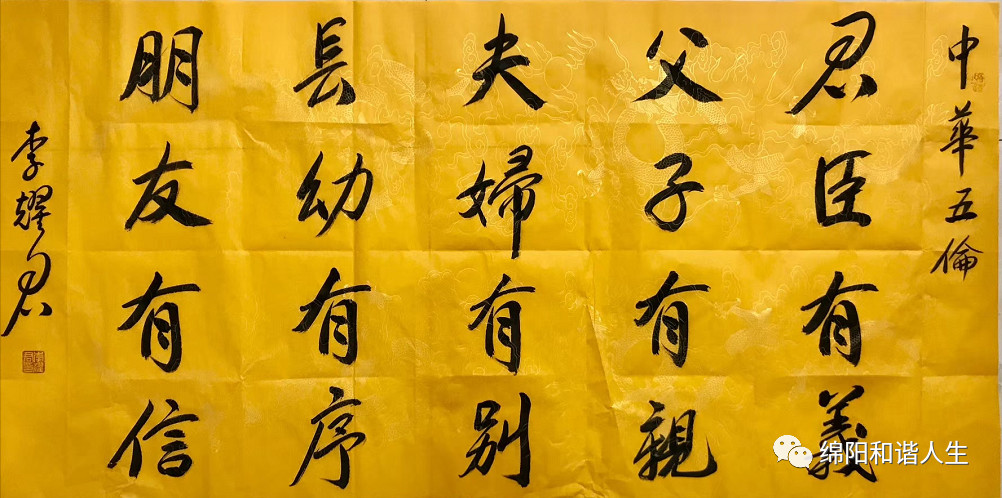 中華五倫
君臣有義
父子有親
夫婦有别
長幼有序
朋友有信
李耀君
绵阳和谐人生